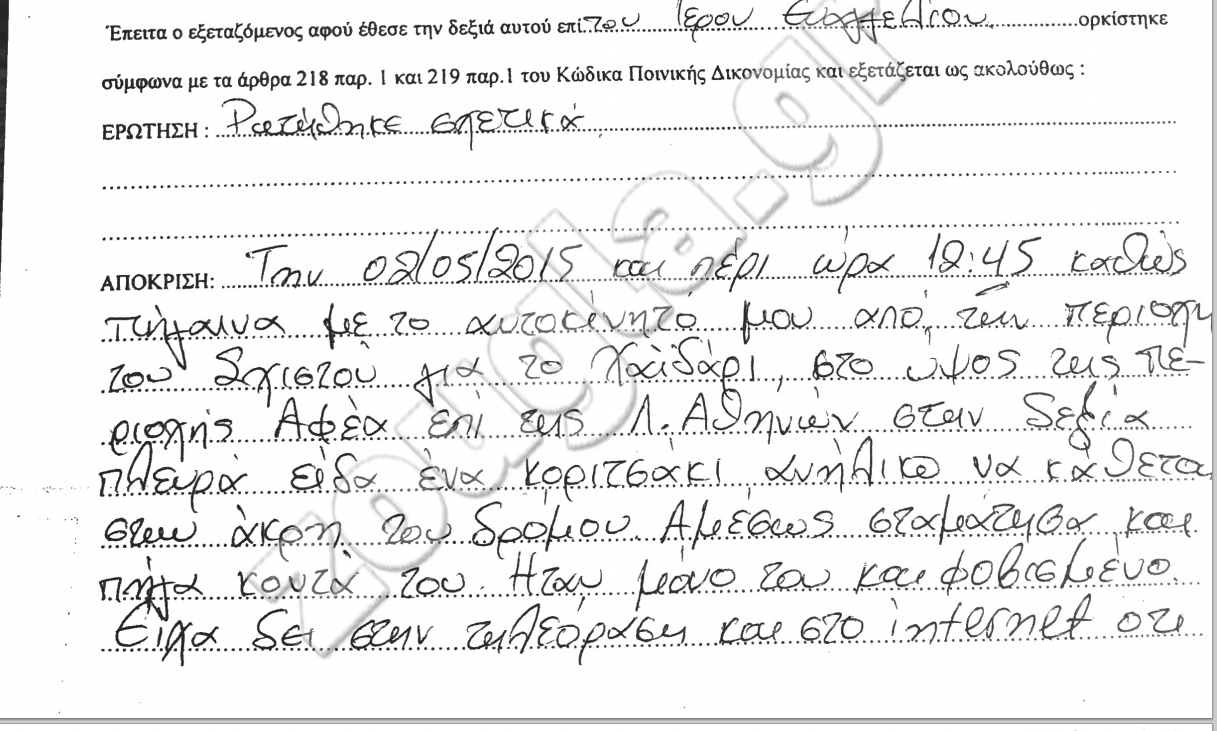 Έπειτα ο εξεταζόμενος αφού έθεσε την δεξιά αυτού επί του Ιερού Ευαγγελίου ορκίστηκε
σύμφωνα με τα άρθρα 218 παρ. 1 και 219 παρ.1 του Κώδικα Ποινικής Δικονομίας και εξετάζεται ως ακολούθως :
ΕΡΩΤΗΣΗ : Ρωτήθηκε σχετικά
ΑΠΟΚΡΙΣΗ: Την 02/05/2015 και περί ώρα 12:45 καθώς
πήγαινα με το αυτοκίνητό μου από την περιοχή
του Σχιστού για το Χαϊδάρι, στο ύψος της πε-
ριοχής Αφέα επί της Λ. Αθηνών στην δεξιά
πλευρά είδα ένα κοριτσάκι ανήλικο να κάθεται
στην άκρη του δρόμου. Αμέσως σταμάτησα και
πήγα κοντά του. Ήταν μόνο του και φοβισμένο.
Είχα δει στην τηλεόραση και στο internet ότι
zougla.gr